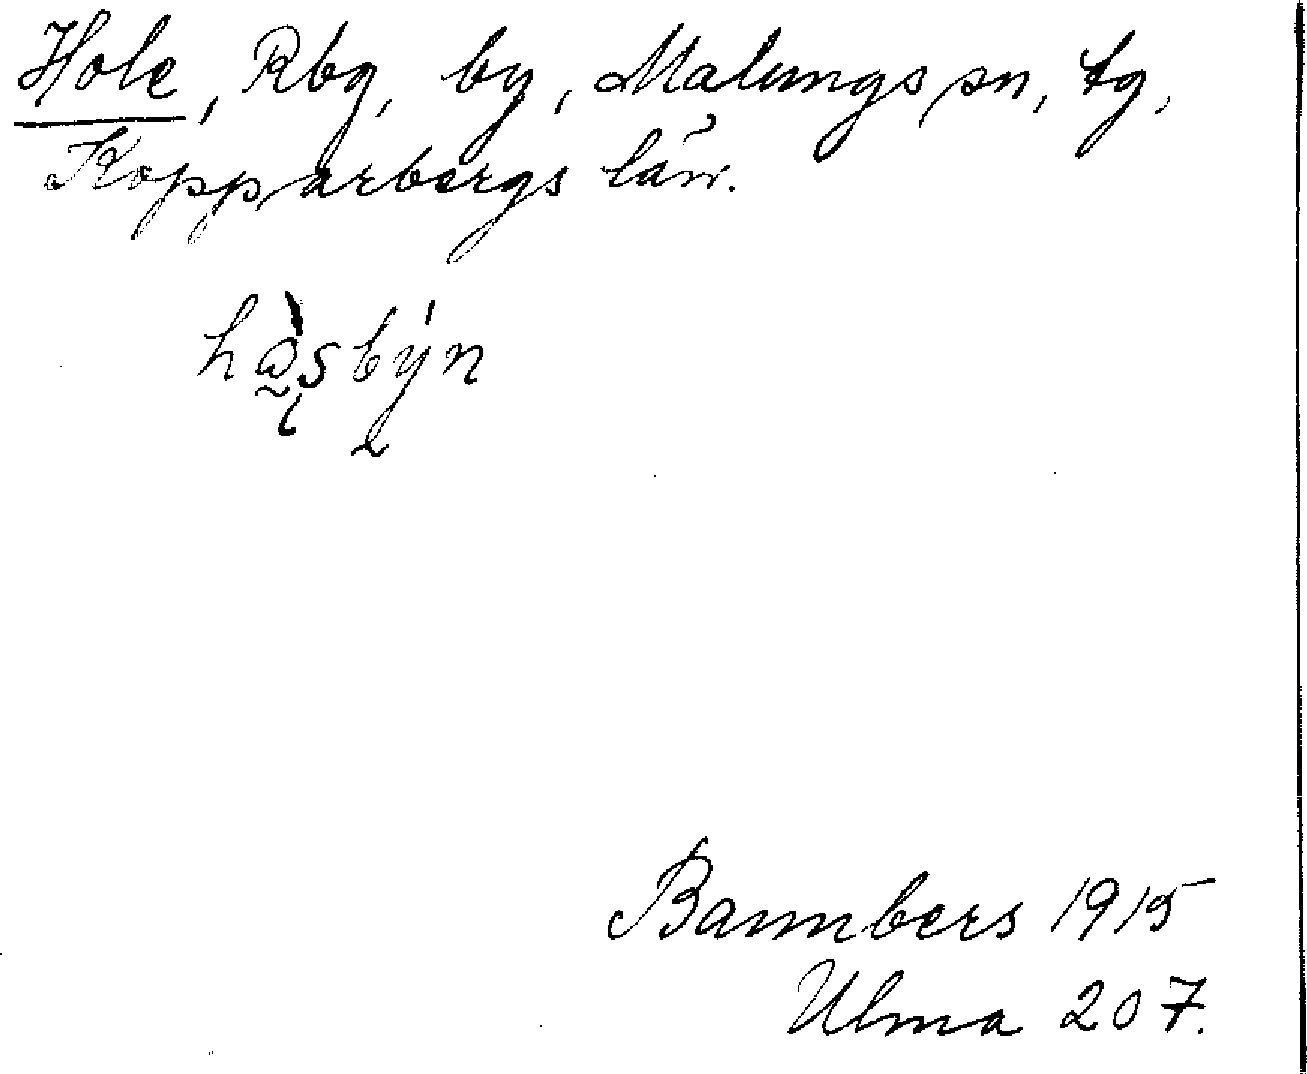 Hole, Rbg, by, Malungs sn, tg,
Kopparbergs län.
Bannbers 1915
Ulma 207.